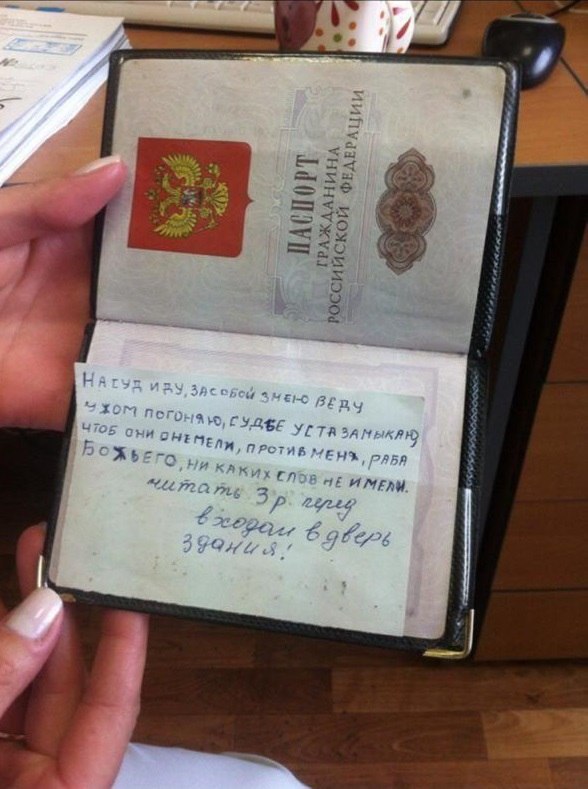 ПАСПОРТ
ГРАЖДАНИНА
РОССИЙСКОЙ ФЕДЕРАЦИИ
НА СУД ИДУ, ЗА СОБОЙ ЗМЕЮ ВЕДУ
УЖОМ ПОГОНЯЮ, СУДЬЕ УСТА ЗАМЫКАЮ,
ЧТОБ ОНИ ОНЕМЕЛИ, ПРОТИВ МЕНЯ, РАБА
БОЖЬЕГО, НИ КАКИХ СЛОВ НЕ ИМЕЛИ.
читать 3 р перед
входом в дверь
здания!